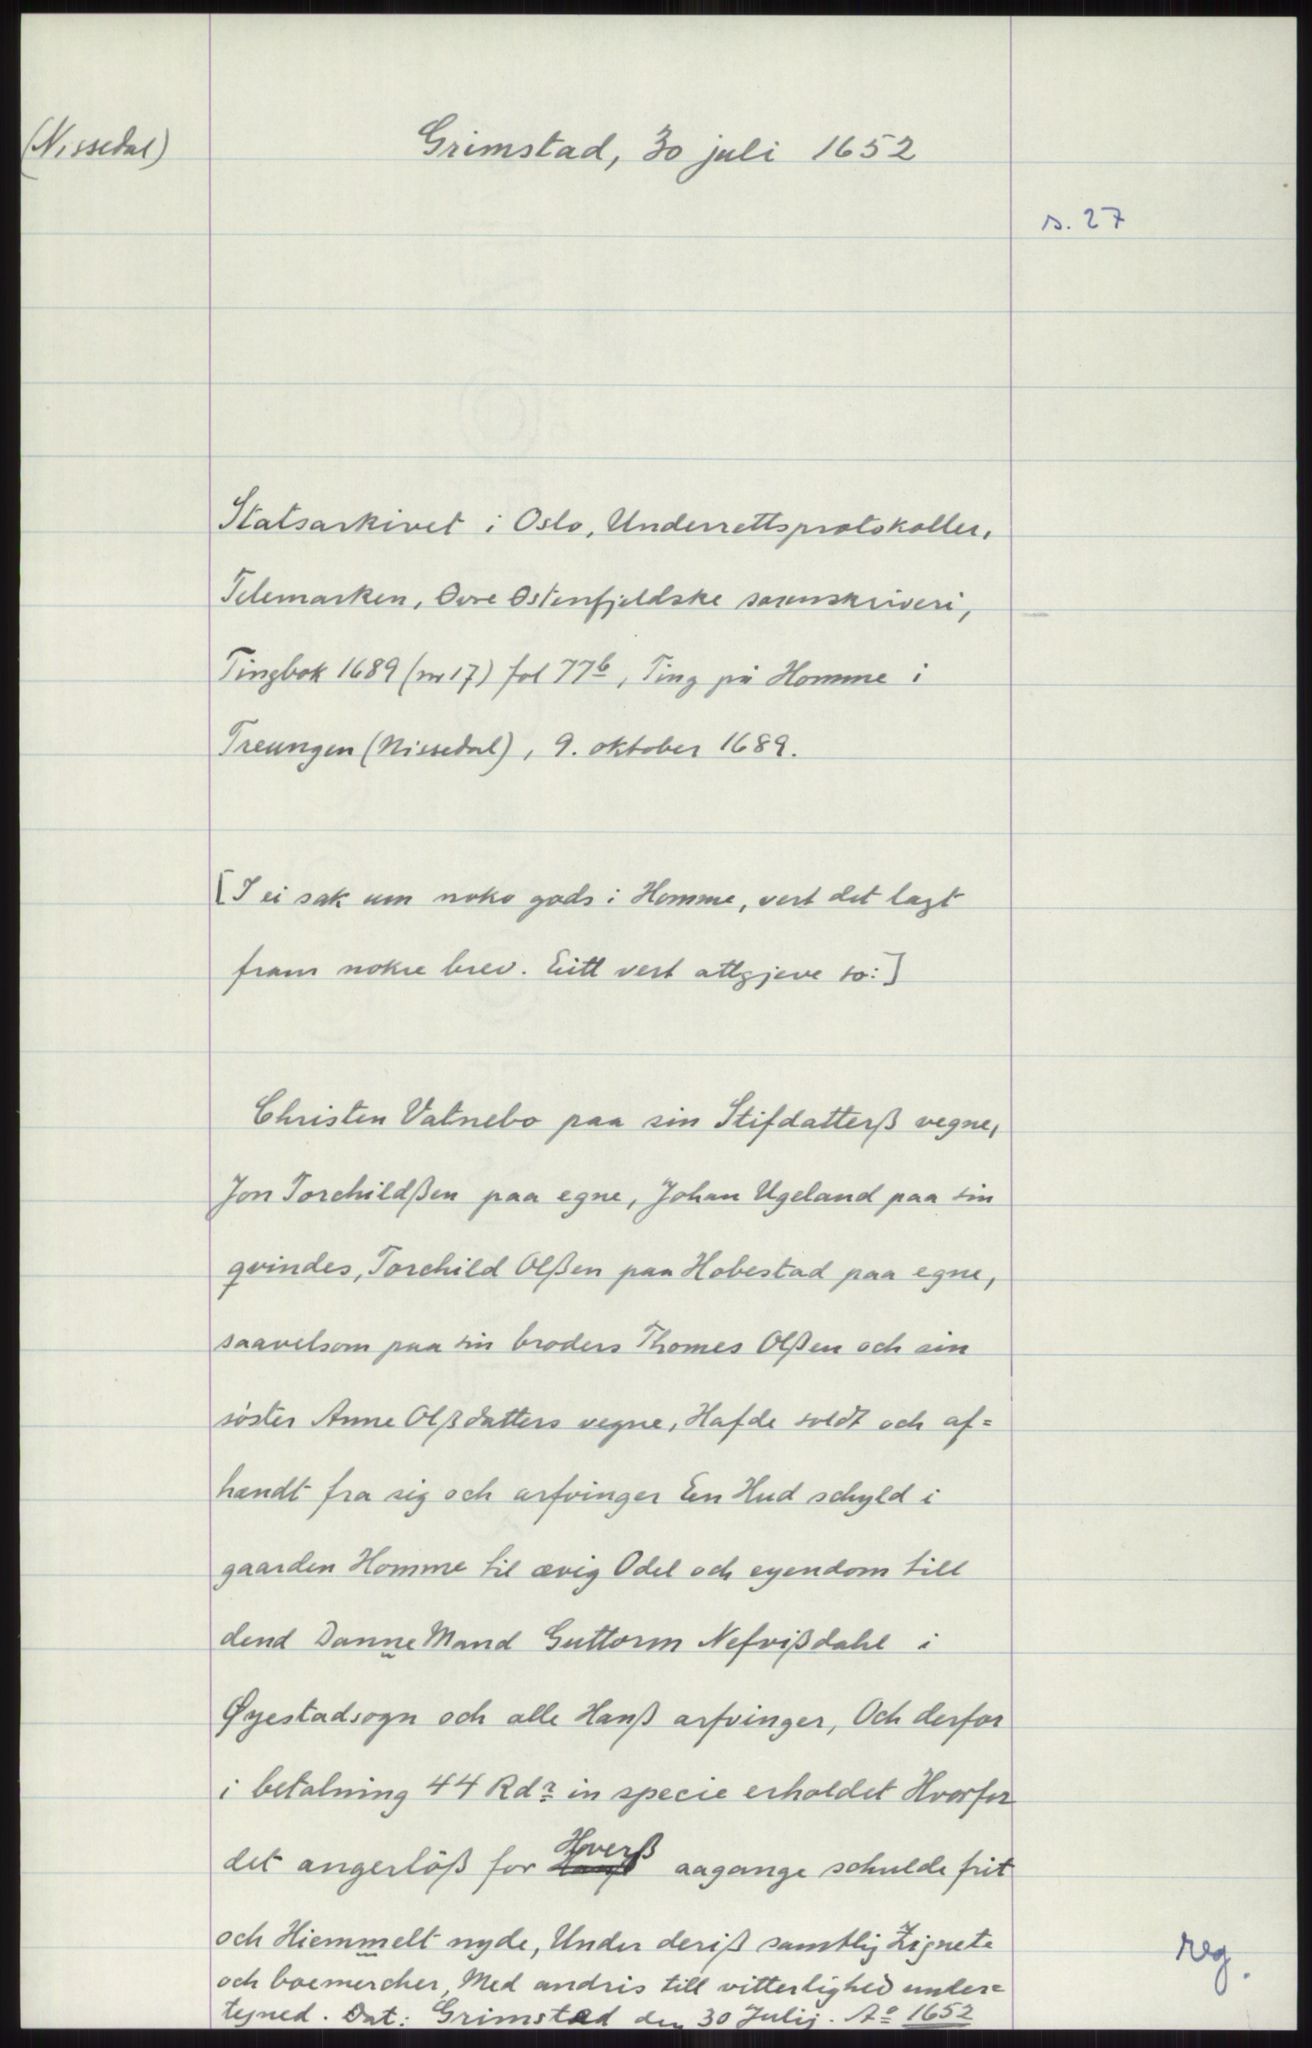 (Nissedal)
Grimstad, 30 juli 1652
s. 27
Statsarkivet i Oslo, Underrettsprotokoller,
Telemarken, Øvre Østenfjeldske sorenskriveri,
Tingbok 1689 (nr 17) fol 77b, Ting på Homme i
Treungen (Nissedal), 9. oktober 1689.
[I ei sak um noko gods i Homme, vert det lagt
fram nokre brev. Eitt vert attgjeve so:]
Christen Vatnebo paa sin Stifdatterß vegne,
Jon Torchildßen paa egne, Johan Ugeland paa sin
qvindes, Torchild Olßen paa Hobestad paa egne,
saavelsom paa sin broders Thomes Olßen och sin
söster Anne Olßdatters vegne, Hafde soldt och af=
hændt fra sig och arfvinger En Hud schyld i
gaarden Homme til ævig Odel och eyendom till
dend Danne Mand Guttorm Nefvißdahl i
Øyestadsogn och alle Hanß arfvinger, Och derfor
i betalning 44 Rdr in specie erholdet Hvorfor
det angerlöß for Hverß aagange schulde frit
och Hiemmelt nyde, Under deriß samtlig Zignete
och boemercher, Med andris till vitterlighed under=
tegned. Dat: Grimstad den 30 Julij. Ao 1652
reg.